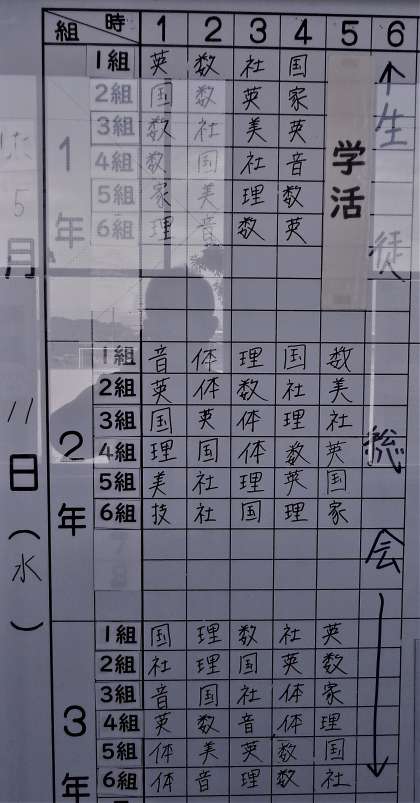 組 時 1 2 3 4 5 6
5月11日（水）
1年
1組 英 数 社 国
2組 国 数 英 家
3組 数 社 美 英
4組 数 国 社 音
5組 家 美 理 数
6組 理 音 数 英
学活
生徒総会
2年
1組 音 体 理 国 数
2組 英 体 数 社 美
3組 国 英 体 理 社
4組 理 国 体 数 英
5組 美 社 理 英 国
6組 技 社 国 理 家
3年
1組 国 理 数 社 英
2組 社 理 国 英 数
3組 音 国 社 体 家
4組 英 数 音 体 理
5組 体 美 英 数 国
6組 体 音 理 数 社